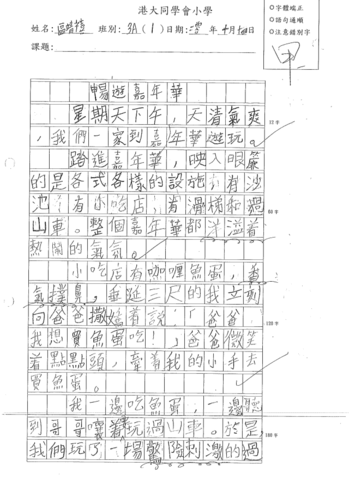 港大同學會小學
○字體端正
○語句通順
○注意錯別字
班別: 3A (1) 日期: 年 4月 日
課題:
甲
暢遊嘉年華
星期天下午,天清氣爽
,我們一家到嘉年華遊玩。
踏進嘉年華,映入眼簾
的是各式各樣的設施:有沙
池;有小吃店;有滑梯和過
山車。整個嘉年華都洋溢着
熱鬧的氣氛。
小吃店有咖喱魚蛋,香
氣撲鼻,垂涎三尺的我立刻
向爸爸撒嬌着說:「爸爸,
我想買魚蛋吃!」爸爸微笑
着點點頭,牽着我的小手去
買魚蛋。
我一邊吃魚蛋,一邊聽
到哥哥嚷着玩過山車。於是,
我們玩了一場驚險刺激的過